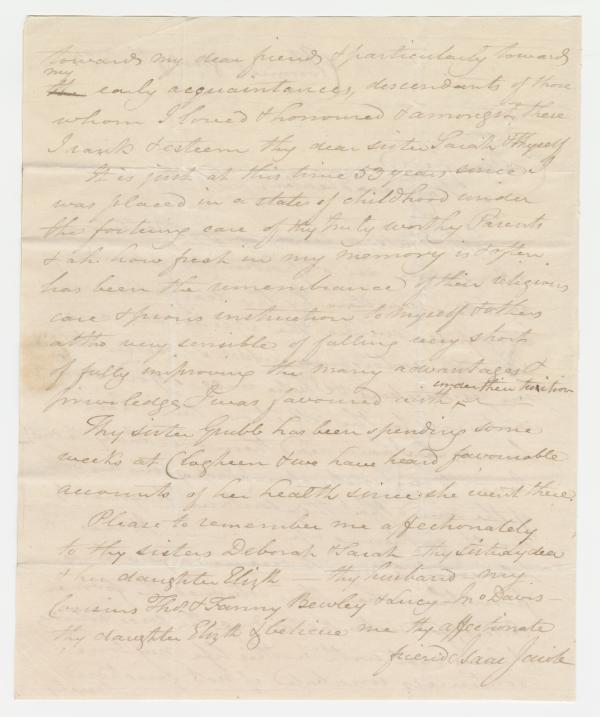 towards my dear friends & particularly towards
my
the early acquaintances, descendants of those
whom I loved & honoured & amongst these
I rank & esteem thy dear sister Sarah & thyself
It is just at this time 53 years since I
was placed in a state of childhood under
the care of thy truly worthy Parents
& ah how fresh in my memory is & often
has been the remembrance of their religious
care & pious instruction to myself & others
altho very sensible of falling very short
of fully improving the many advantages &
under their tuition
priviledges I was favoured with
Thy sister Grubb has been spending some
weeks at Clogheen & we have heard favourable
accounts of her health since she went there
Please to remember me affectionately
to thy sisters Deborah & Sarah thy
& her daughter Elizth — thy husband my
Cousins Thos & Fanny Bewley & Lucy — Davis —
thy daughter Elizth & believe me thy affectionate
friend Isaac Jacob